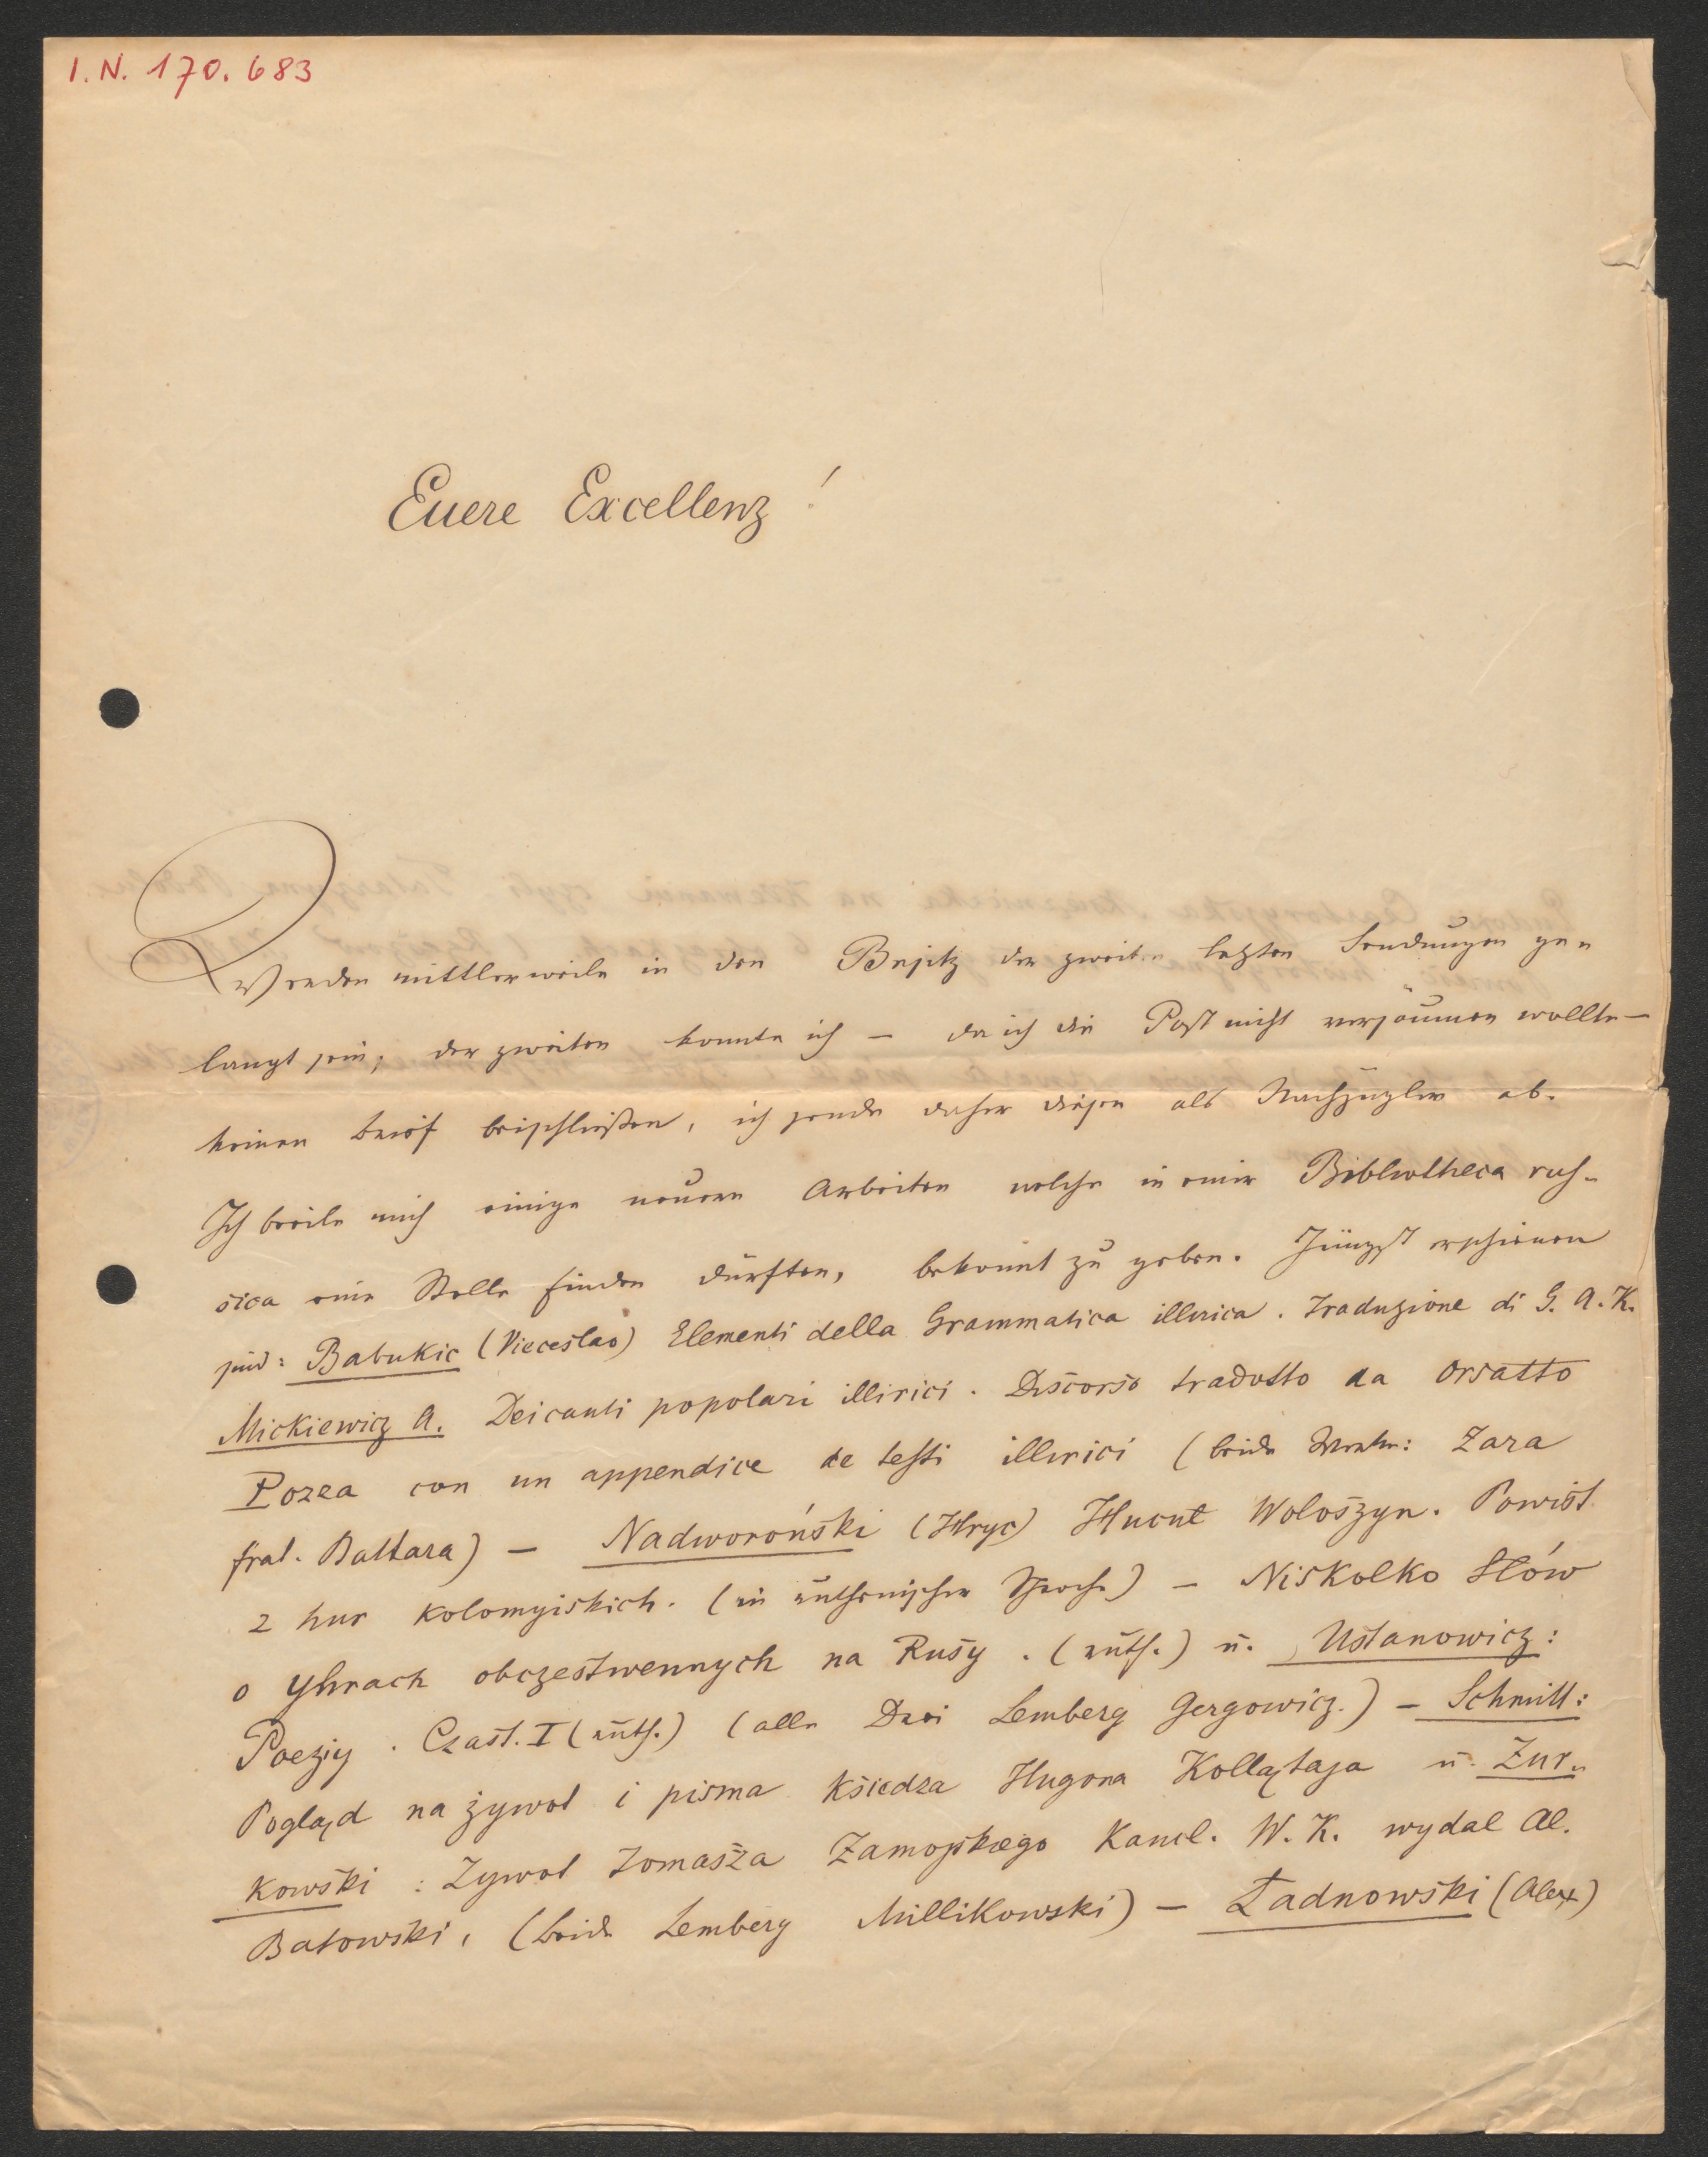 I. N. 170. 683
Euere Excellenz!
Werden mittlerweile in den Besitz der zweiten letzten Sendungen ge-
langt sein; der zweiten konnte ich – da ich die Post nicht versäumen wollte –
keinen Brief beischließen, ich sende daher diesen als Nachzügler ab.
Ich beeile mich einige neuere Arbeiten welche in einer Bibliotheca ros-
sica eine Stelle finden dürften, bekannt zu geben. Jüngst erschienen
sind: Babukic (Vieceslao) Elementi della Grammatica illirica. Traduzione di G. A. K.
Mickiewicz A. Dei canti popolari illirici. Discorso tradotto da Orsatto
Pozza con un appendice de testi illirici (beide Werke: Zara
frat. Battara) – Nadworoński (Hryc) Hucuł Wołoszyn. Powist
z hur kolomyiskich. (in ruthenischer Sprache) – Niskolko Słów
o Yhrach obczestwennych na Rusy. (ruth.) u. Ustanowicz:
Poeziy. Czast. I (ruth.) (alle Drei Lemberg Gergowicz.) – Schmitt:
Pogląd na żywot i pisma Ksiedza Hugona Kollątaja u. Żur-
kowski: Zywot Tomasza Zamojskiego Kancl. W. K. wydal Al.
Batowski, (beide Lemberg Millikowski) – Ładnowski (Alex)